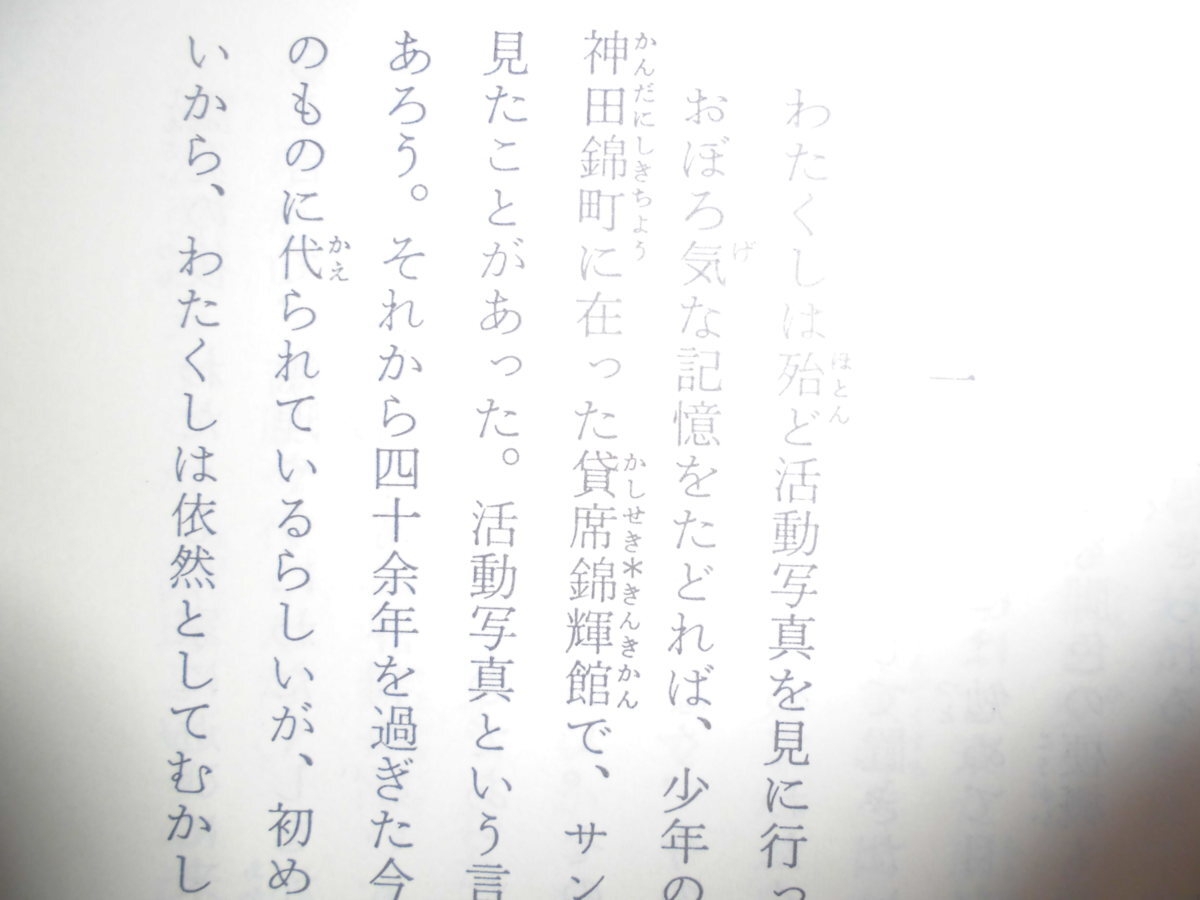 一
わたくしは殆ど活動写真を見に行っ
おぼろ気な記憶をたどれば、少年の
神田錦町に在った貸席錦輝館で、サン
見たことがあった。活動写真という言
あろう。それから四十余年を過ぎた今
のものに代られているらしいが、初め
いから、わたくしは依然としてむかし
ほとん
げ
かんだにしきちょう
かしせき*きんきかん
かえ